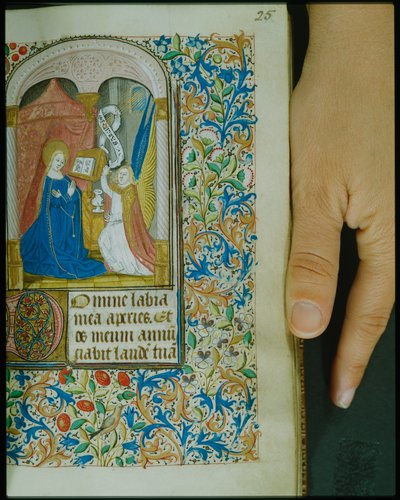 25
Domine labia
mea aperies. Et
os meum annū
ciabit laudē tuā